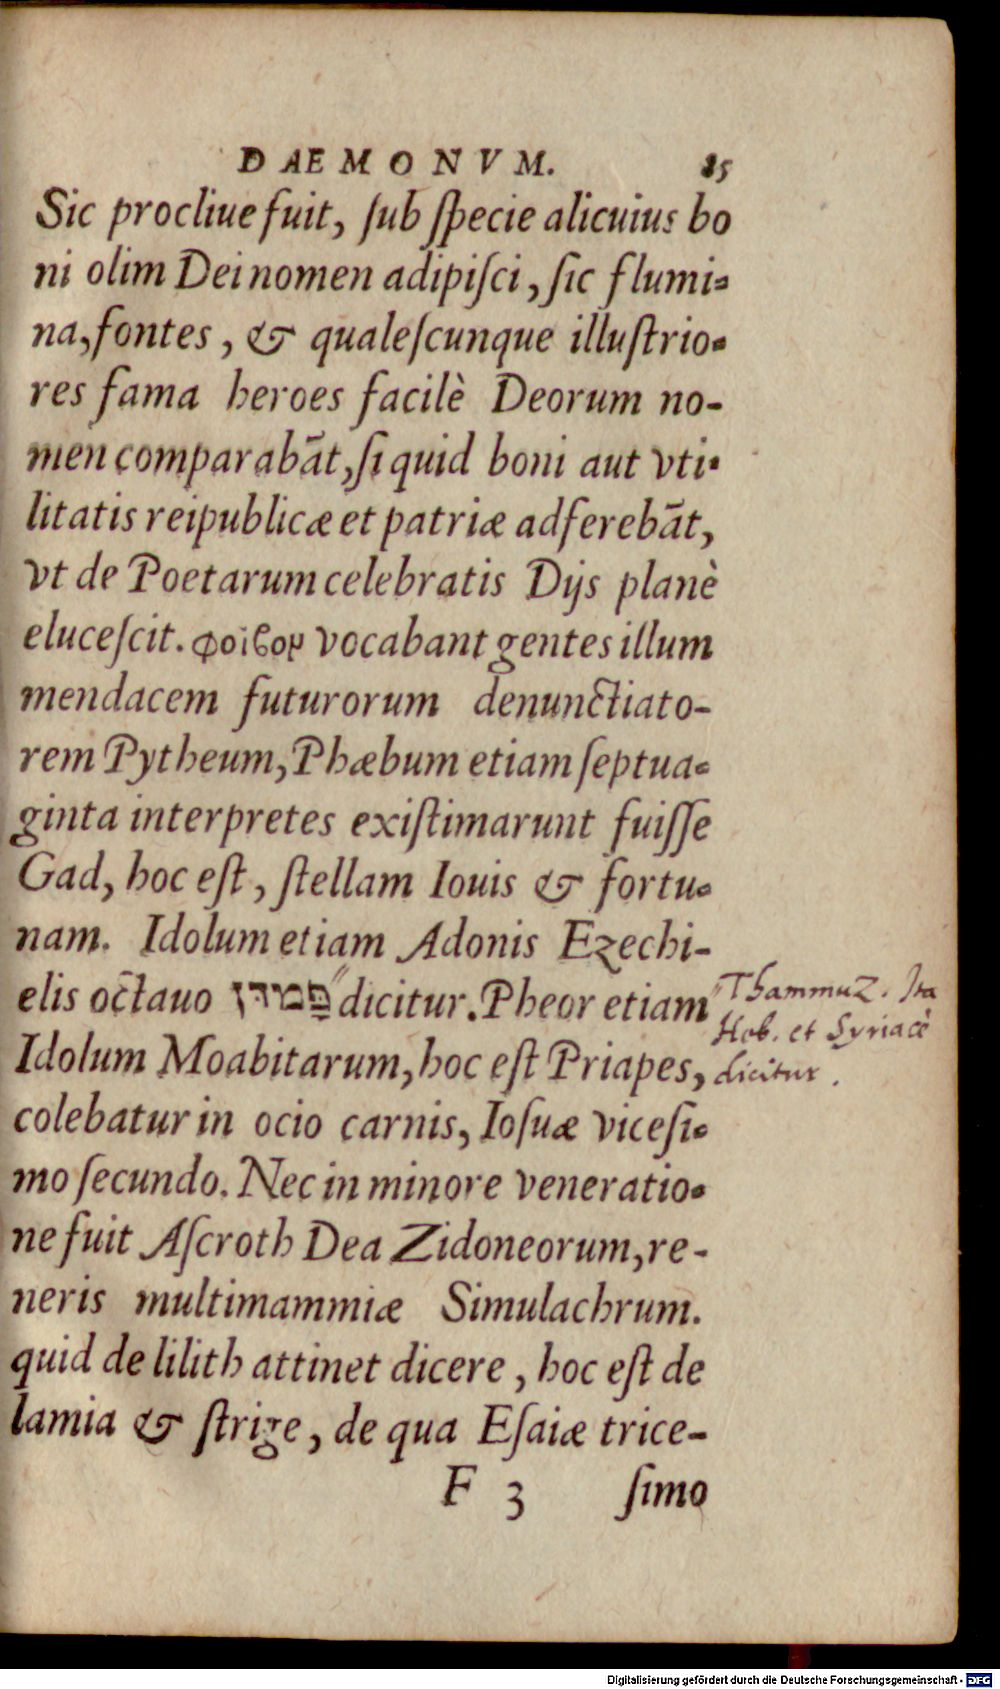 DAEMONVM. 85
Sic procliue fuit, ſub ſpecie alicuius bo
ni olim Dei nomen adipiſci, ſic flumi-
na, fontes, & qualeſcunque illuſtrio-
res fama heroes facilè Deorum no-
men comparabāt, ſi quid boni aut vti-
litatis reipublicæ et patriæ adferebāt,
vt de Poetarum celebratis Dijs planè
eluceſcit. φοίβον vocabant gentes illum
mendacem futurorum denunctiato-
rem Pytheum, Phæbum etiam ſeptua-
ginta interpretes exiſtimarunt fuiſſe
Gad, hoc eſt, ſtellam Iouis & fortu-
nam. Idolum etiam Adonis Ezechi-
elis octauo dicitur. Pheor etiam
Thammuz. Ita
Heb. et Syriacè
dicitur.
Idolum Moabitarum, hoc eſt Priapes,
colebatur in ocio carnis, Ioſuæ viceſi-
mo ſecundo. Nec in minore veneratio-
ne fuit Aſcroth Dea Zidoneorum, re-
neris multimammiæ Simulachrum.
quid de lilith attinet dicere, hoc eſt de
lamia & ſtrige, de qua Eſaiæ trice-
F 3 ſimo
Digitalisierung gefördert durch die Deutsche Forschungsgemeinschaft - DFG